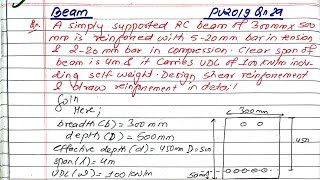 Beam
PU2019 Qn 2a
Qn. A simply supported RC beam of 300mm x 500
mm is reinforced with 5-20mm bar in tension
& 2-20mm bar in compression. Clear span of
beam is 4m & it carries UDL of 100 KN/m inclu
ding self weight. Design shear reinforcement
& draw reinforcement in detail
Soln
Here;
300mm
breadth (b) = 300mm
depth (D) = 500mm
effective depth (d) = 450mm D=500
450
span (l) = 4m
50mm
UDL (w) = 100 KN/m